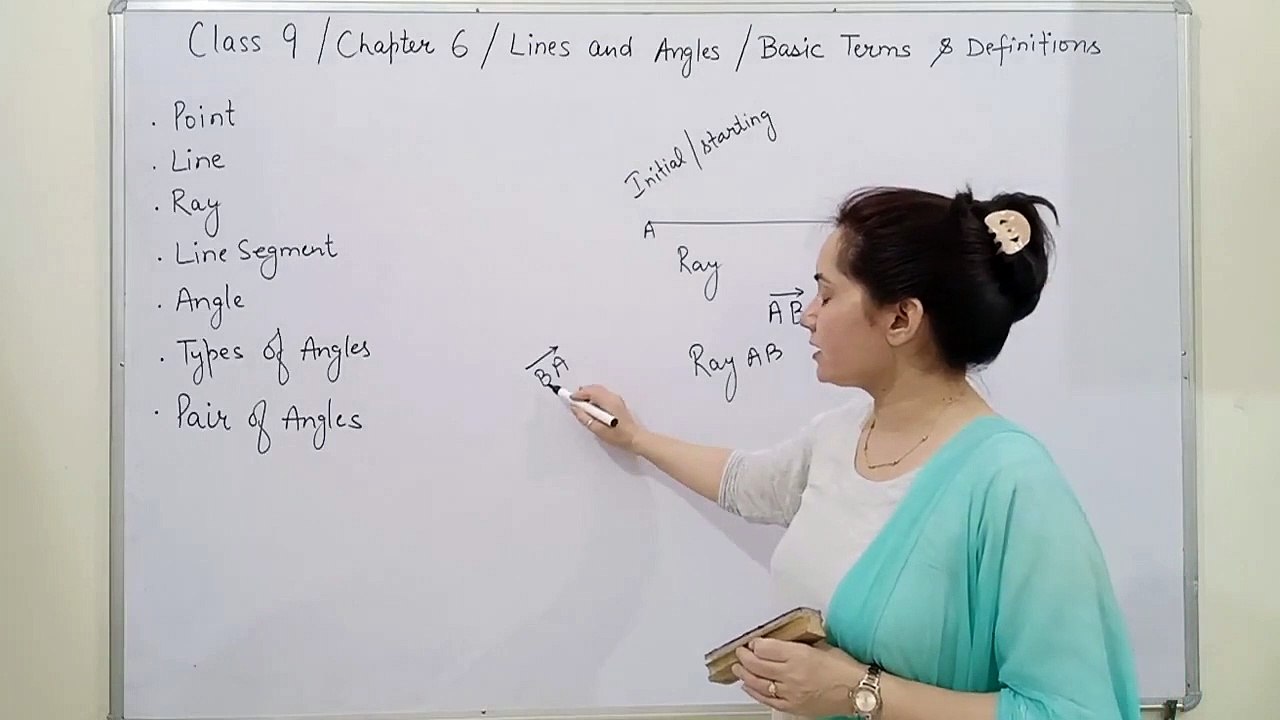 Class 9 / Chapter 6 / Lines and Angles / Basic Terms & Definitions
. Point
. Line
. Ray
. Line Segment
. Angle
. Types of Angles
. Pair of Angles
Initial/starting
A
Ray
AB
Ray AB
BA